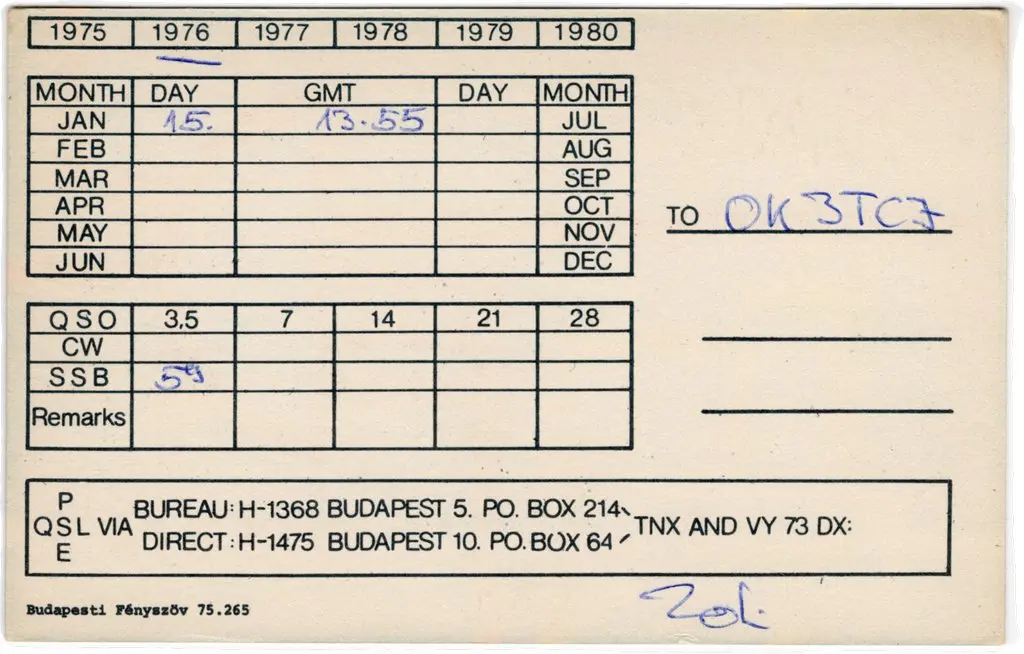 1975 1976 1977 1978 1979 1980
MONTH DAY GMT DAY MONTH
JAN 15. 13.55 JUL
FEB AUG
MAR SEP
APR OCT
MAY NOV
JUN DEC
TO OK3TCJ
QSO 3.5 7 14 21 28
CW
SSB 59
Remarks
PSE QSL VIA
BUREAU: H-1368 BUDAPEST 5. PO. BOX 214
DIRECT: H-1475 BUDAPEST 10. PO. BOX 64
TNX AND VY 73 DX:
Zoli
Budapesti Fényszöv 75.265